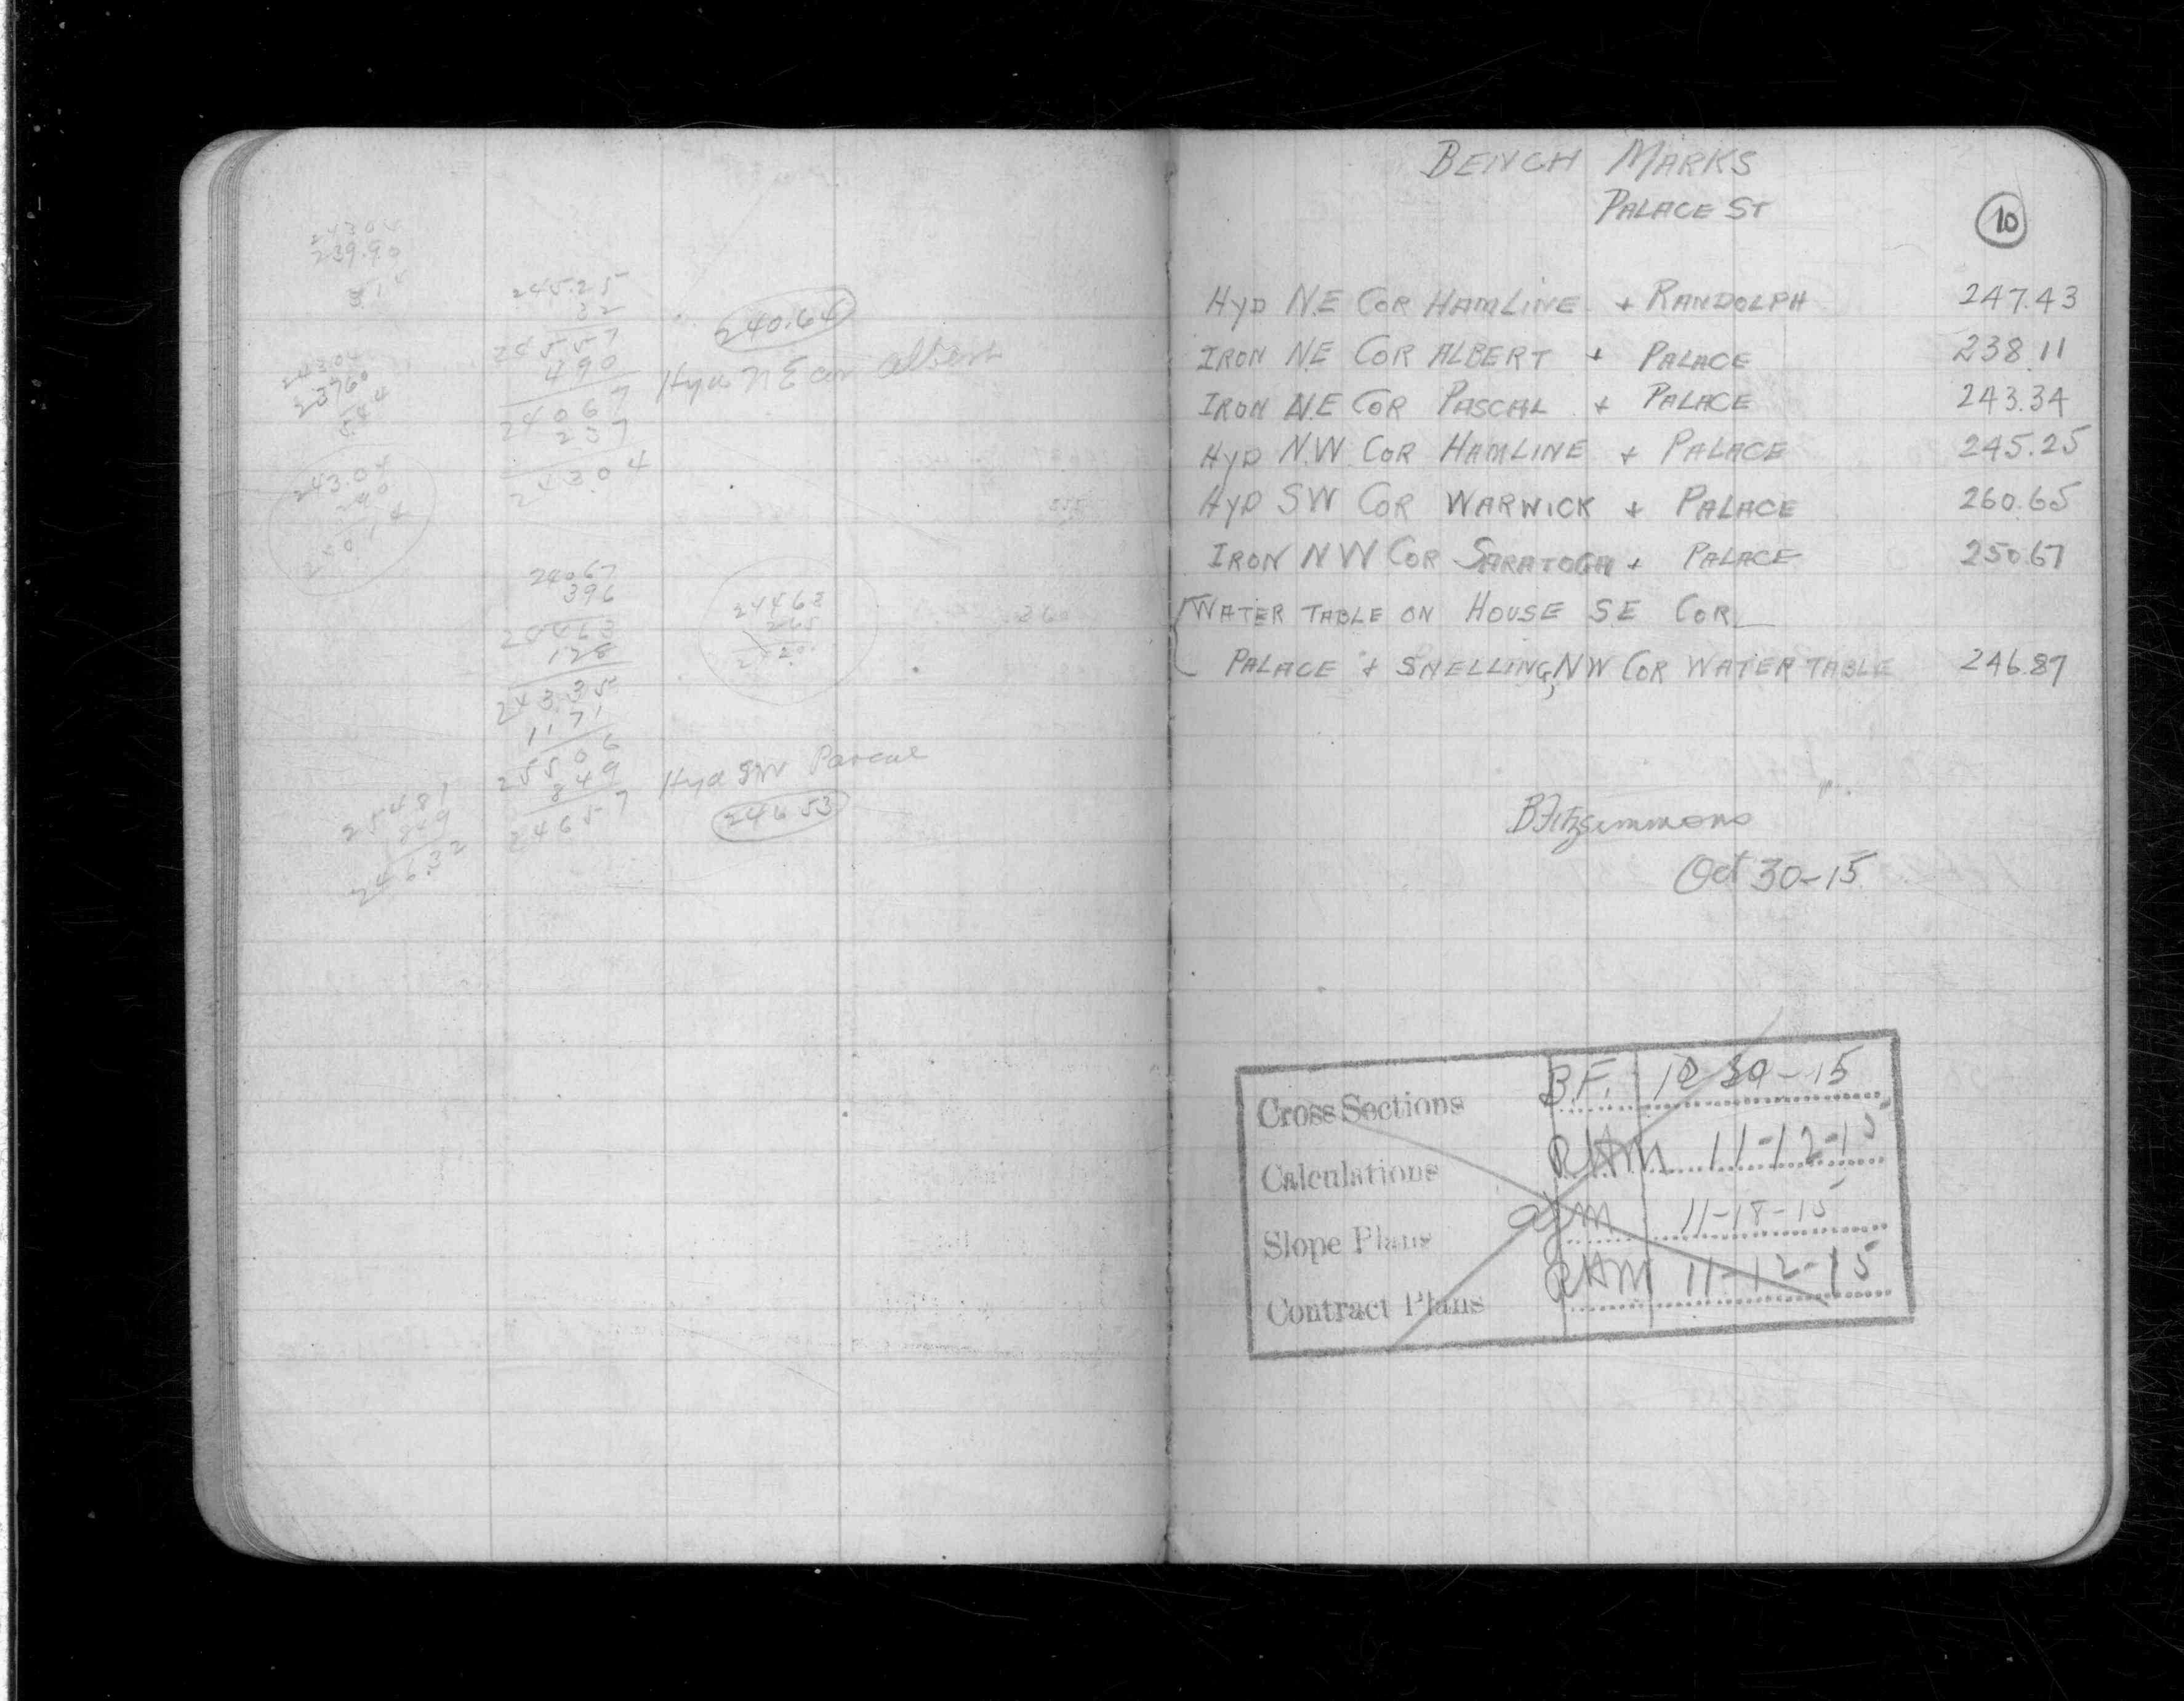 24304
239.90
314
24304
23760
5.44
243.04
290
240.14
245.25
32
24557
490
24067
237
243.04
240.64
Hyd NE cor Albert
24067
396
24463
128
243.35
1171
25506
849
24657
24463
265
Hyd SW Pascal
246 53
25481
849
246.32
BENCH MARKS
PALACE ST
10
HYD N.E COR HAMLINE + RANDOLPH 247.43
IRON NE COR ALBERT + PALACE 238.11
IRON N.E COR PASCAL + PALACE 243.34
HYD N.W. COR HAMLINE + PALACE 245.25
HYD SW COR WARWICK + PALACE 260.65
IRON NW COR SARATOGA + PALACE 250.67
WATER TABLE ON HOUSE SE COR
PALACE + SNELLING, NW COR WATER TABLE 246.87
B Fitzsimmons
Oct 30-15
Cross Sections B.F. 10-30-15
Calculations RAM 11-12-15
Slope Plans ajm 11-18-15
Contract Plans RAM 11-12-15